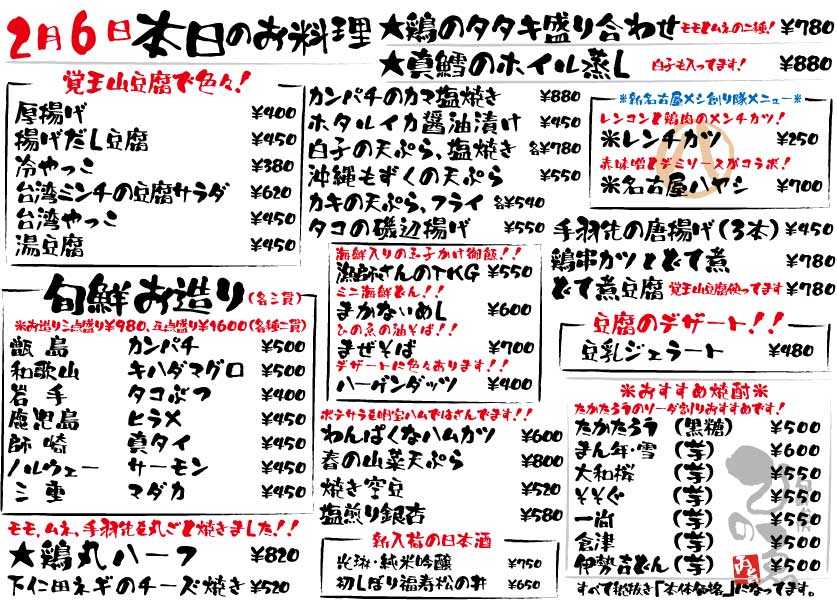 2月6日 本日のお料理
★鶏のタタキ盛り合わせ モモとムネの二種! ¥780
★真鱈のホイル蒸し 白子も入ってます! ¥880
覚王山豆腐で色々!
厚揚げ ¥400
揚げだし豆腐 ¥450
冷やっこ ¥380
台湾ミンチの豆腐サラダ ¥620
台湾やっこ ¥450
湯豆腐 ¥450
旬鮮お造り(各三貫)
※お造り三点盛り¥980、五点盛り¥1600(各種二貫)
甑島 カンパチ ¥500
和歌山 キハダマグロ ¥500
岩手 タコぶつ ¥400
鹿児島 ヒラメ ¥450
師崎 真タイ ¥450
ノルウェー サーモン ¥450
三重 マダカ ¥450
モモ、ムネ、手羽先を丸ごと焼きました!!
★鶏丸ハーフ ¥820
下仁田ネギのチーズ焼き ¥520
カンパチのカマ塩焼き ¥880
ホタルイカ醤油漬け ¥450
白子の天ぷら、塩焼き 各¥780
沖縄もずくの天ぷら ¥550
カキの天ぷら、フライ 各¥540
タコの磯辺揚げ ¥550
海鮮入りの玉子かけ御飯!!
漁師さんのTKG ¥550
ミニ海鮮どん!!
まかないめし ¥600
ひの魚の油そば!!
まぜそば ¥700
デザートに色々あります!!
ハーゲンダッツ ¥400
ポテサラを明宝ハムではさんでます!!
わんぱくなハムカツ ¥600
春の山菜天ぷら ¥800
焼き空豆 ¥520
塩煎り銀杏 ¥580
新入荷の日本酒
純米吟醸 ¥750
初しぼり福寿松の井 ¥650
※新名古屋メシ創り隊メニュー※
レンコンと鶏肉のメンチカツ!
※レンチカツ ¥250
赤味噌とデミソースがコラボ!
※名古屋ハヤシ ¥700
手羽先の唐揚げ(3本) ¥450
鶏串カツとどて煮 ¥780
どて煮豆腐 覚王山豆腐使ってます ¥780
豆腐のデザート!!
豆乳ジェラート ¥480
※おすすめ焼酎※
たかたろうのソーダ割りおすすめです!
たかたろう (黒糖) ¥500
まん年・雪 (芋) ¥600
大和桜 (芋) ¥550
そそぐ (芋) ¥550
一尚 (芋) ¥550
倉津 (芋) ¥500
伊勢吉どん(芋) ¥500
すべて税抜き「本体価格」になってます。